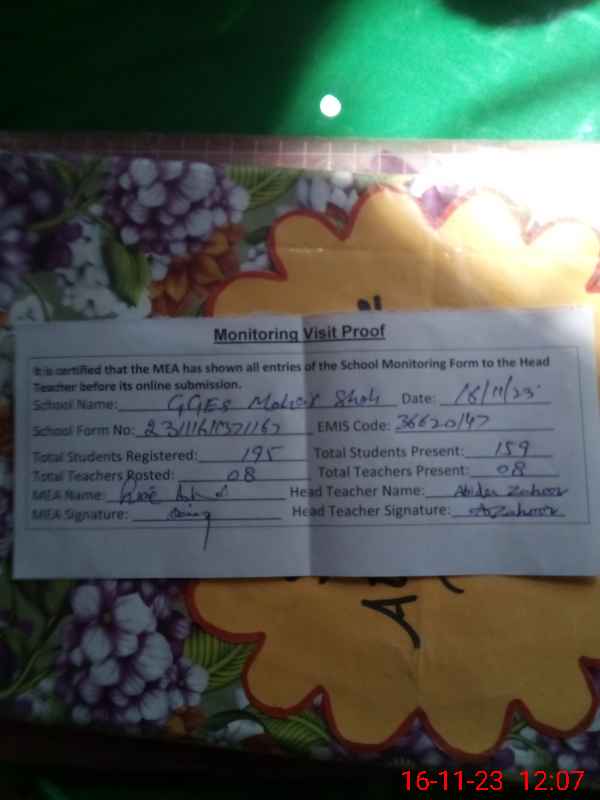 Monitoring Visit Proof
It is certified that the MEA has shown all entries of the School Monitoring Form to the Head
Teacher before its online submission.
School Name: GGES Mohar Shah Date: 16/11/23
School Form No: EMIS Code: 36620147
Total Students Registered: 195 Total Students Present: 159
Total Teachers Posted: 08 Total Teachers Present: 08
MEA Name: Head Teacher Name: Abida Zahoor
MEA Signature: Head Teacher Signature: AZahoor
16-11-23 12:07